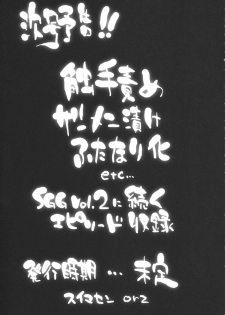 次号予告!!
触手責め
ザーメン漬け
ふたなり化
etc…
SGG Vol.2に続く
エピソード収録
発行時期…未定
スイマセン orz